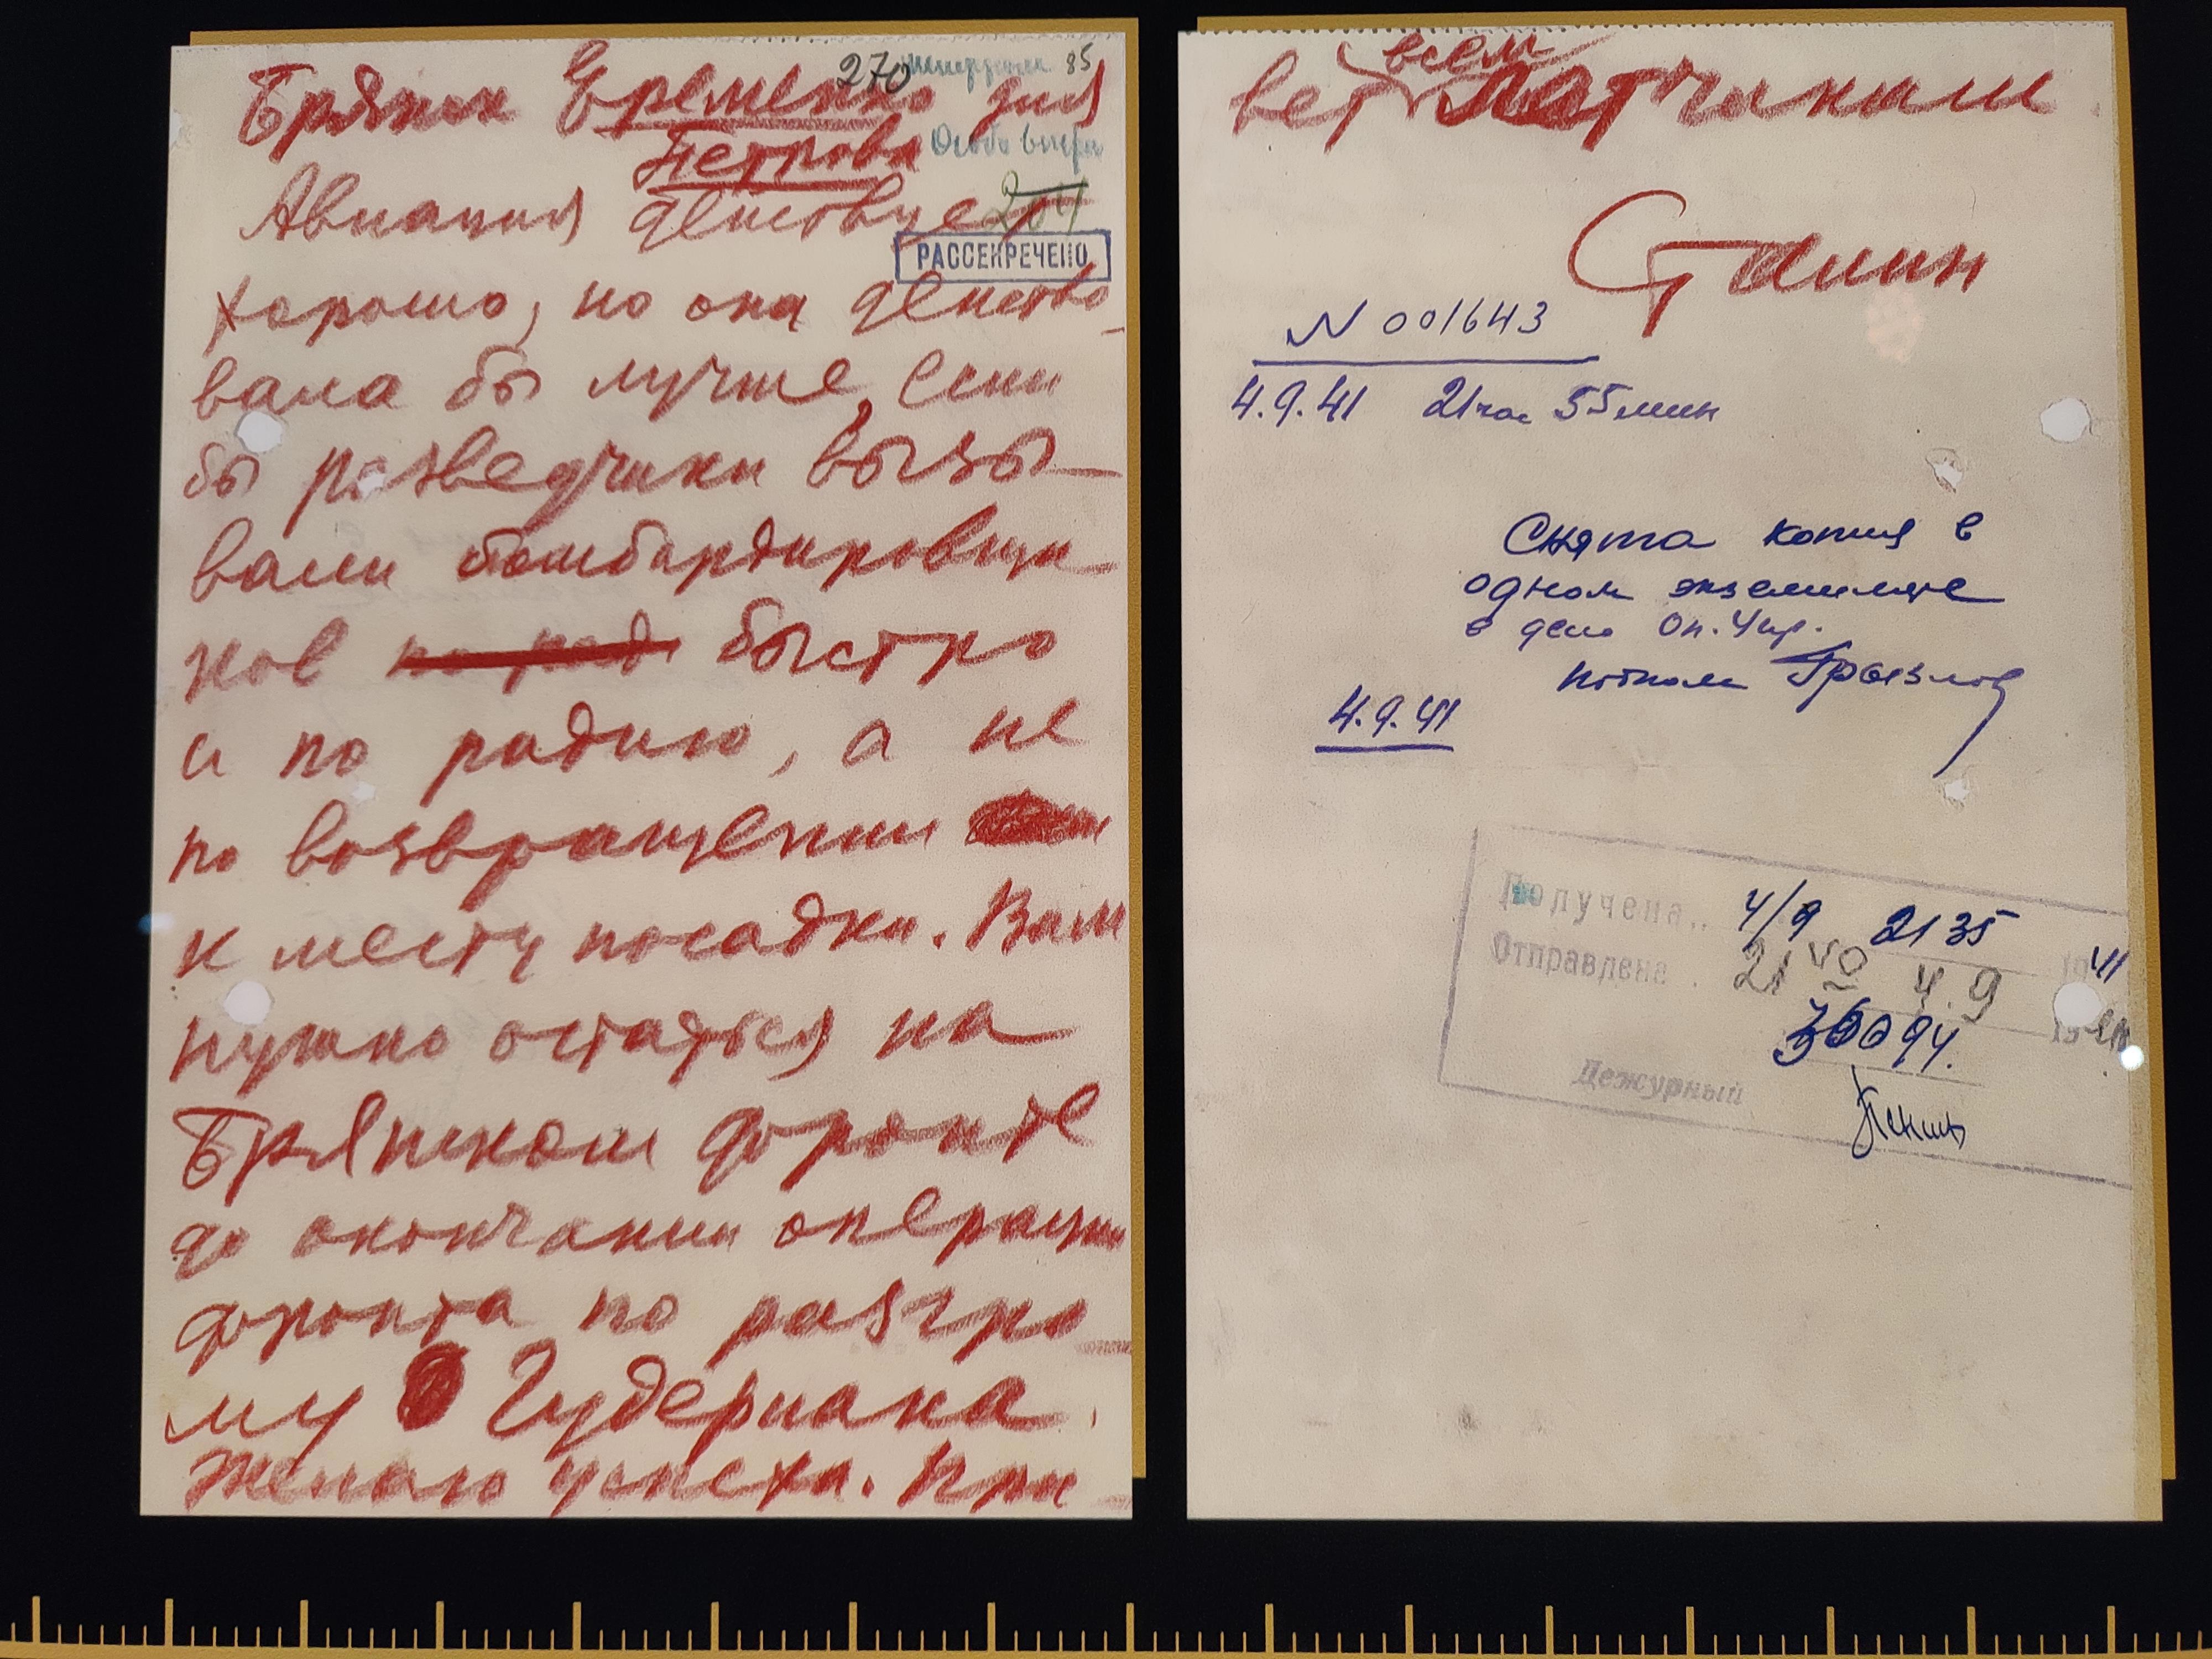 270 85
Брянск Еременко для
Петрова
Особо
204
Авиация действует
РАССЕКРЕЧЕНО
хорошо, но она действо-
вала бы лучше, если
бы разведчики вызы-
вали бомбардировщи-
ков быстро
и по радио, а не
по возвращении
к месту посадки. Вам
нужно остаться на
Брянском фронте
до окончании операции
фронта по разгро-
му Гудериана.
Желаю успеха. При
вет всем летчикам
Сталин
N 001643
4.9.41 21час 55мин
Снята копия в
одном экземпляре
в дело Оп.Упр.
Грызлов
4.9.41
Получена.. 4/9 2135 1941
Отправлена. 21 40 4.9
Дежурный